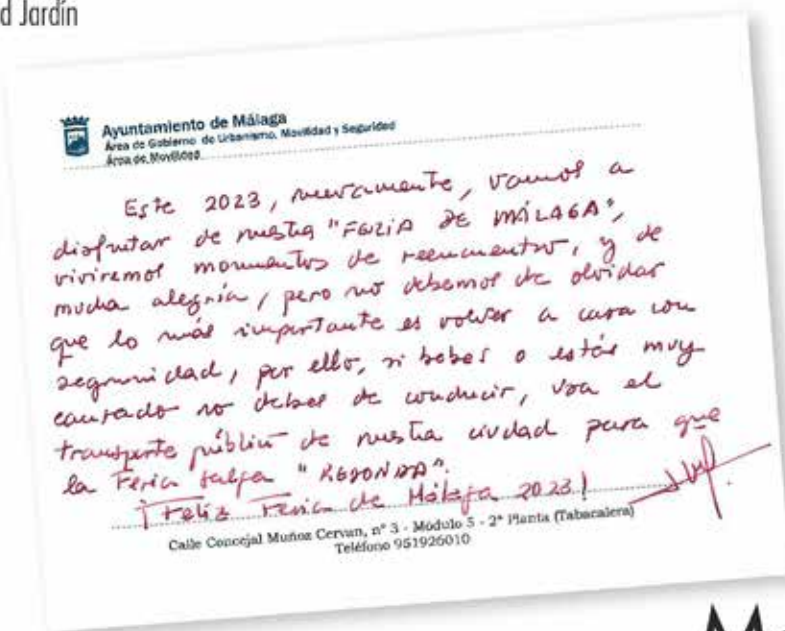 d Jardín
Ayuntamiento de Málaga
Área de Gobierno de Urbanismo, Movilidad y Seguridad
Área de Movilidad
Este 2023, nuevamente, vamos a
disfrutar de nuestra "FERIA DE MÁLAGA",
viviremos momentos de reencuentro, y de
mucha alegría, pero no debemos de olvidar
que lo más importante es volver a casa con
seguridad, por ello, si bebes o estás muy
cansado no debes de conducir, usa el
transporte público de nuestra ciudad para que
la Feria salga "REDONDA".
¡Feliz Feria de Málaga 2023!
Calle Concejal Muñoz Cervan, nº 3 - Módulo 5 - 2ª Planta (Tabacalera)
Teléfono 951926010